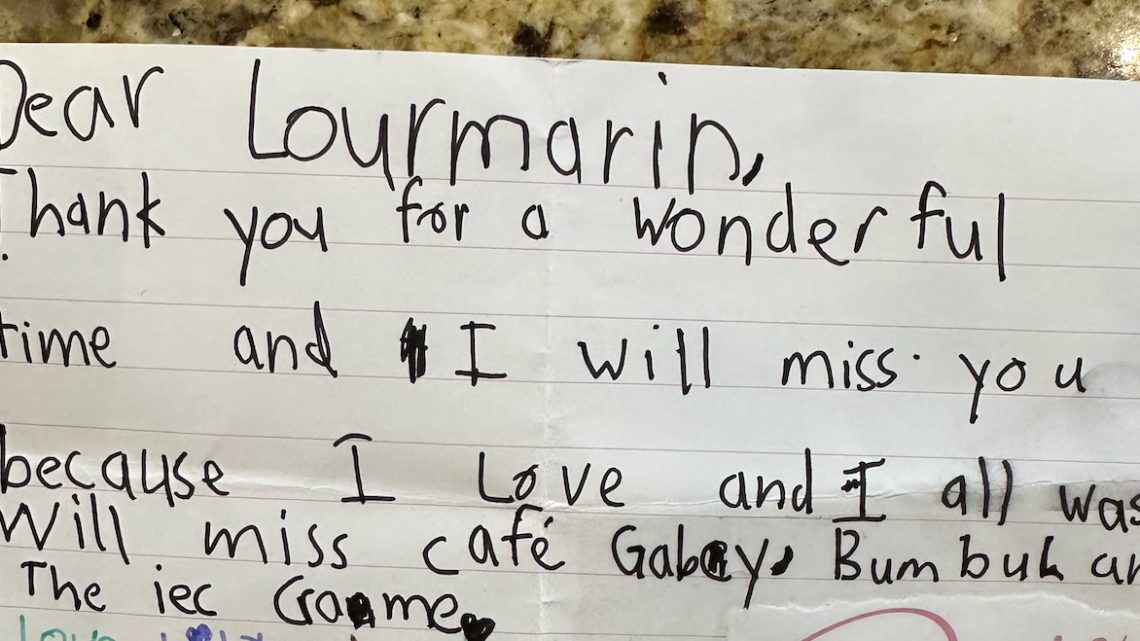 Dear Lourmarin,
Thank you for a wonderful
time and I will miss you
because I Love and I all was
Will miss café Gabey, Bum buh an
The iec Crame
Love